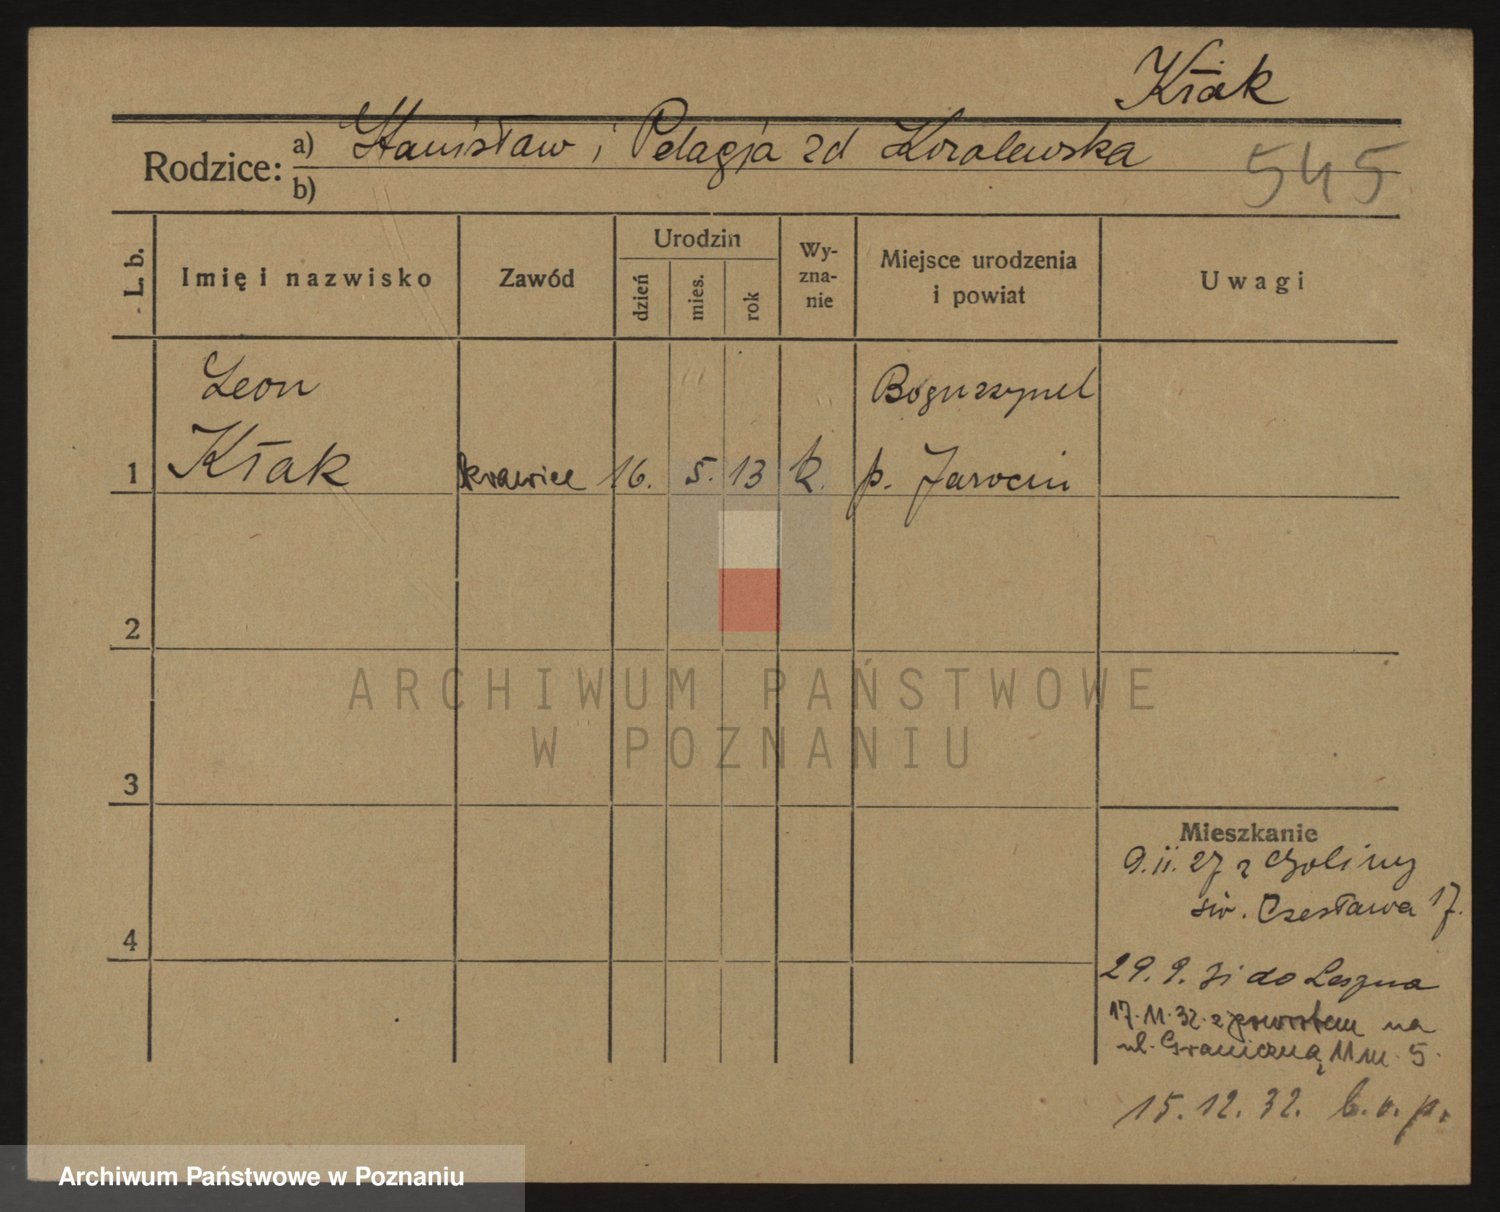 Kłak
Rodzice:
a) Stanisław i Pelagja zd Koralewska
b)
545
L. b.
Imię i nazwisko
Zawód
Urodzin
dzień
mies.
rok
Wy-
zna-
nie
Miejsce urodzenia
i powiat
Uwagi
Leon
Boguszynek
1 Kłak krawiec 16. 5. 13 k. p. Jarocin
2
ARCHIWUM PAŃSTWOWE
W POZNANIU
3
Mieszkanie
9.ii.27 z Goliny
św. Czesława 17.
4
29.9.31 do Leszna
17.11.32 z powrotem na
ul. Graniczną 11 m. 5.
15.12.32. b.o.p.
Archiwum Państwowe w Poznaniu